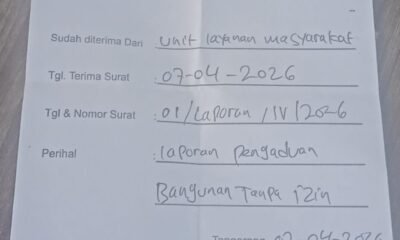 Sudah diterima Dari : unit layanan masyarakat
Tgl. Terima Surat : 07-04-2026
Tgl & Nomor Surat : 01/Laporan/IV/2026
Perihal : laporan pengaduan
Bangunan Tanpa izin